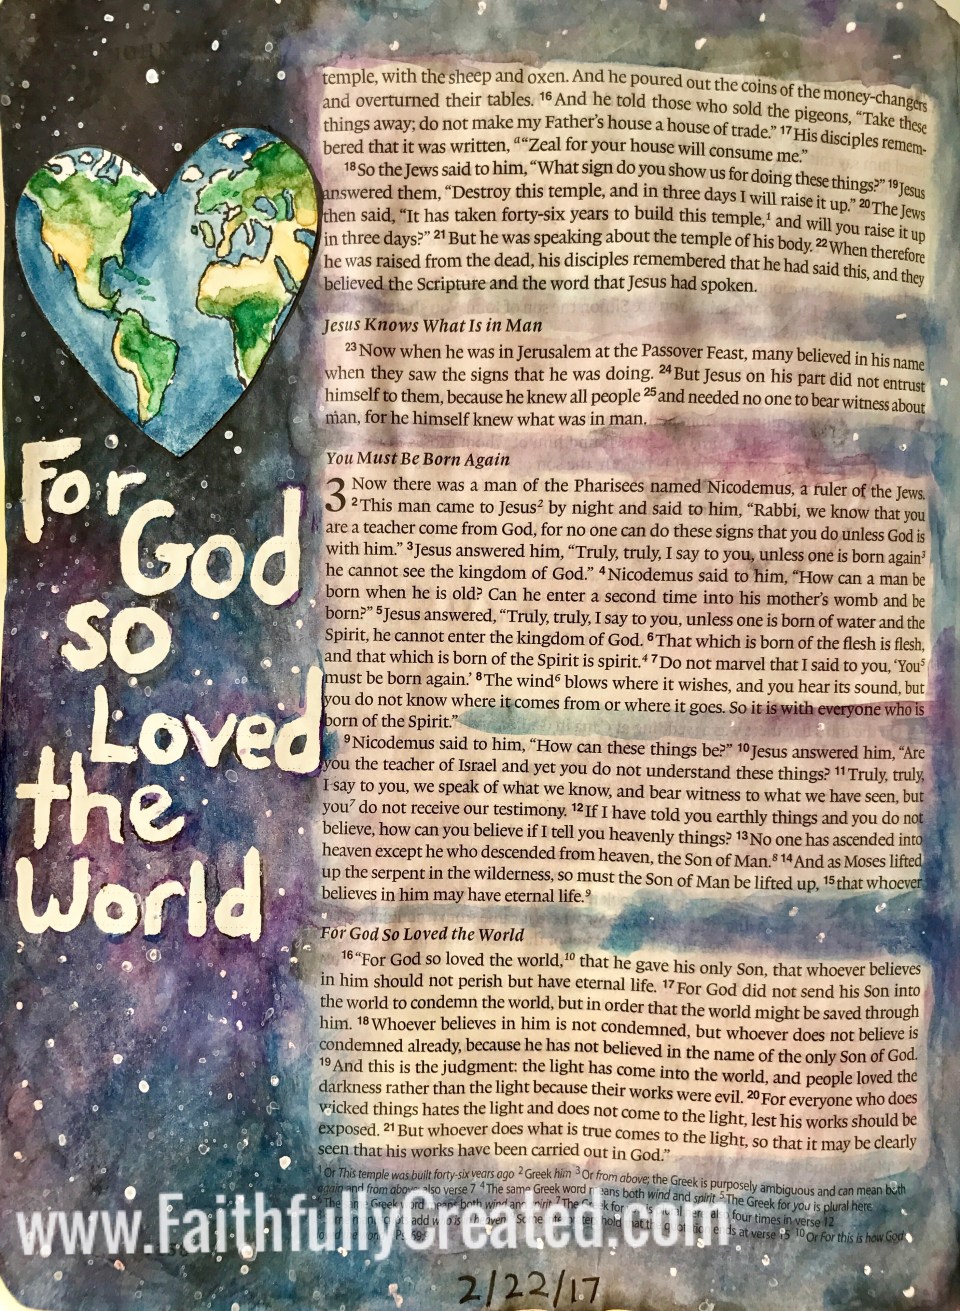 JOHN
For
God
so
Loved
the
World
temple, with the sheep and oxen. And he poured out the coins of the money-changers
and overturned their tables. 16 And he told those who sold the pigeons, “Take these
things away; do not make my Father’s house a house of trade.” 17 His disciples remem-
bered that it was written, a“Zeal for your house will consume me.”
18 So the Jews said to him, “What sign do you show us for doing these things?” 19 Jesus
answered them, “Destroy this temple, and in three days I will raise it up.” 20 The Jews
then said, “It has taken forty-six years to build this temple,1 and will you raise it up
in three days?” 21 But he was speaking about the temple of his body. 22 When therefore
he was raised from the dead, his disciples remembered that he had said this, and they
believed the Scripture and the word that Jesus had spoken.
Jesus Knows What Is in Man
23 Now when he was in Jerusalem at the Passover Feast, many believed in his name
when they saw the signs that he was doing. 24 But Jesus on his part did not entrust
himself to them, because he knew all people 25 and needed no one to bear witness about
man, for he himself knew what was in man.
You Must Be Born Again
3 Now there was a man of the Pharisees named Nicodemus, a ruler of the Jews.
2 This man came to Jesus2 by night and said to him, “Rabbi, we know that you
are a teacher come from God, for no one can do these signs that you do unless God is
with him.” 3 Jesus answered him, “Truly, truly, I say to you, unless one is born again3
he cannot see the kingdom of God.” 4 Nicodemus said to him, “How can a man be
born when he is old? Can he enter a second time into his mother’s womb and be
born?” 5 Jesus answered, “Truly, truly, I say to you, unless one is born of water and the
Spirit, he cannot enter the kingdom of God. 6 That which is born of the flesh is flesh,
and that which is born of the Spirit is spirit.4 7 Do not marvel that I said to you, ‘You5
must be born again.’ 8 The wind6 blows where it wishes, and you hear its sound, but
you do not know where it comes from or where it goes. So it is with everyone who is
born of the Spirit.”
9 Nicodemus said to him, “How can these things be?” 10 Jesus answered him, “Are
you the teacher of Israel and yet you do not understand these things? 11 Truly, truly,
I say to you, we speak of what we know, and bear witness to what we have seen, but
you7 do not receive our testimony. 12 If I have told you earthly things and you do not
believe, how can you believe if I tell you heavenly things? 13 No one has ascended into
heaven except he who descended from heaven, the Son of Man.8 14 And as Moses lifted
up the serpent in the wilderness, so must the Son of Man be lifted up, 15 that whoever
believes in him may have eternal life.9
For God So Loved the World
16 “For God so loved the world,10 that he gave his only Son, that whoever believes
in him should not perish but have eternal life. 17 For God did not send his Son into
the world to condemn the world, but in order that the world might be saved through
him. 18 Whoever believes in him is not condemned, but whoever does not believe is
condemned already, because he has not believed in the name of the only Son of God.
19 And this is the judgment: the light has come into the world, and people loved the
darkness rather than the light because their works were evil. 20 For everyone who does
wicked things hates the light and does not come to the light, lest his works should be
exposed. 21 But whoever does what is true comes to the light, so that it may be clearly
seen that his works have been carried out in God.”
1 Or This temple was built forty-six years ago 2 Greek him 3 Or from above; the Greek is purposely ambiguous and can mean both
again and from above; also verse 7 4 The same Greek word means both wind and spirit 5 The Greek for you is plural here
The same Greek word means both wind and spirit 7 The Greek for you is plural here; also four times in verse 12
add who is in heaven hold that the quotation ends at verse 15 10 Or For this is how God
www.FaithfullyCreated.com
2/22/17